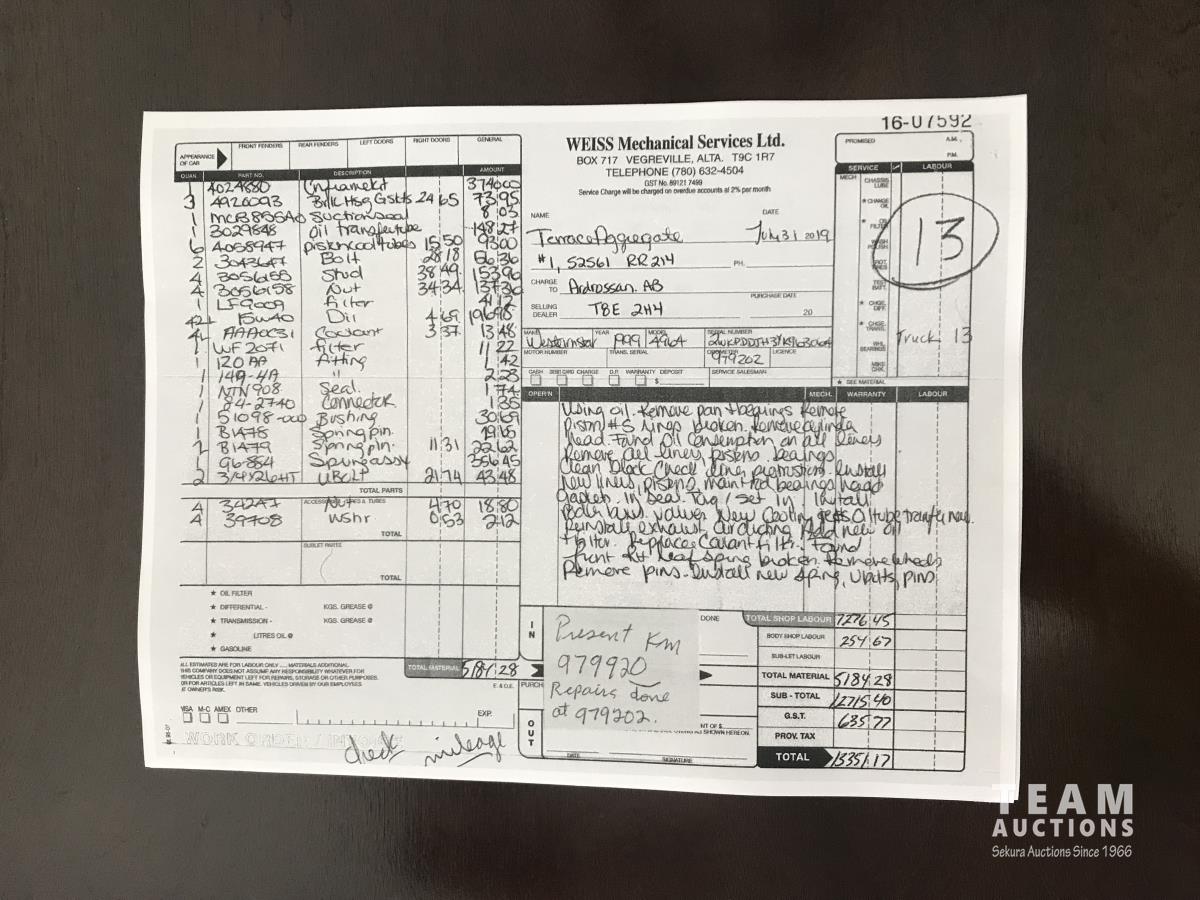 16-07592
APPEARANCE OF CAR FRONT FENDERS REAR FENDERS LEFT DOORS RIGHT DOORS GENERAL
QUAN. PART NO. DESCRIPTION AMOUNT
1 4024880 Inframekit 3740 00
3 4920093 Gskts 24 65 73 95
1 Suction seal 8 03
1 3029848 oil transfer tube 148 27
6 4058947 piskn cool tubes 15 50 93 00
2 Bolt 28 18 56 36
4 3056155 Stud 38 49 153 96
4 3056158 Nut 34 34 137 36
1 LF9009 filter 41 12
42L 15W40 Oil 4 69 196 98
4L AAA0031 Coolant 3 37 13 48
1 WF2071 filter 11 22
1 120AA fitting 1 42
1 149-4A " 2 23
1 NTN908 Seal 1 74
1 84-2740 Connector 1 35
51098-000 Bushing 30 69
1 B1478 Spring pin 19 65
2 B1479 Spring pin 11 31 22 62
1 96-854 Spring assy 356 45
2 UBOLT 21 74 43 48
TOTAL PARTS
ACCESSORIES & TUBES
4 342A7 Nut 4 70 18 80
4 39708 wshr 0 53 2 12
TOTAL
SUBLET PARTS
TOTAL
★ OIL FILTER
★ DIFFERENTIAL - KGS. GREASE @
★ TRANSMISSION - KGS. GREASE @
★ LITRES OIL @
★ GASOLINE
ALL ESTIMATES ARE FOR LABOUR ONLY ..... MATERIALS ADDITIONAL.
THIS COMPANY DOES NOT ASSUME ANY RESPONSIBILITY WHATEVER FOR
VEHICLES OR EQUIPMENT LEFT FOR REPAIRS, STORAGE OR OTHER PURPOSES,
OR FOR ARTICLES LEFT IN SAME. VEHICLES DRIVEN BY OUR EMPLOYEES
AT OWNER'S RISK.
TOTAL MATERIAL 5184.28
E. & O.E.
VISA M-C AMEX OTHER EXP.
WORK ORDER / INVOICE
check mileage
WEISS Mechanical Services Ltd.
BOX 717 VEGREVILLE, ALTA. T9C 1R7
TELEPHONE (780) 632-4504
GST No. 89121 7499
Service Charge will be charged on overdue accounts at 2% per month
NAME DATE
Terrace Aggregate July 31 2019
#1, 52561 RR214 PH.
CHARGE TO Ardrossan. AB
PURCHASE DATE
SELLING DEALER T8E 2H4 20
MAKE YEAR MODEL SERIAL NUMBER
Westernstar 1999 4964
MOTOR NUMBER TRANS. SERIAL ODOMETER LICENCE
979202
CASH DEBIT CARD CHARGE O.P. WARRANTY DEPOSIT SERVICE SALESMAN
$
PROMISED A.M.
P.M.
SERVICE LABOUR
MECH CHASSIS LUBE
★ CHANGE OIL
★ OIL FILTER
13
★ CHGE. DIFF.
★ CHGE. TRANS.
Truck 13
WHL. BEARINGS
★ SEE MATERIAL
OPER'N MECH. WARRANTY LABOUR
Using oil. Remove pan + bearings Remove
Piston #5 rings broken. Remove cylinder
head Found Oil Consumption on all liners
Remove all liners, pistons, bearings
Clean block Check liner protrusion. Install
new liners, pistons, main + rod bearings, head
gasket. In Seal. Install
valves New Oil tube transfer new.
Reinstall exhaust, air ducting Add new oil
+ filter. Replace Coolant filter. Found
front leaf spring broken. Remove wheels
Remove pins. Install new spring, Ubolts, pins
IN
OUT
DONE
Present KM
979920
Repairs done
at 979202.
PURCH
AS SHOWN HEREON.
DATE SIGNATURE
TOTAL SHOP LABOUR 7276.45
BODY SHOP LABOUR 254.67
SUB-LET LABOUR
TOTAL MATERIAL 5184.28
SUB - TOTAL 12715.40
G.S.T. 635.77
PROV. TAX
TOTAL 13351.17
TEAM
AUCTIONS
Sekura Auctions Since 1966